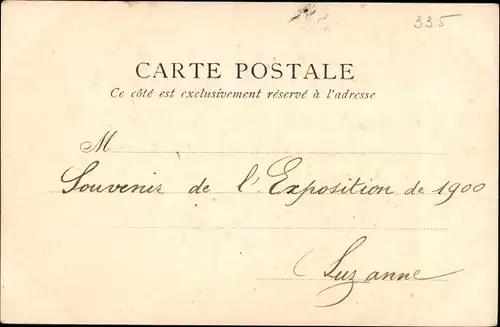 335
CARTE POSTALE
Ce côté est exclusivement réservé à l'adresse
M
Souvenir de l'Exposition de 1900
Suzanne